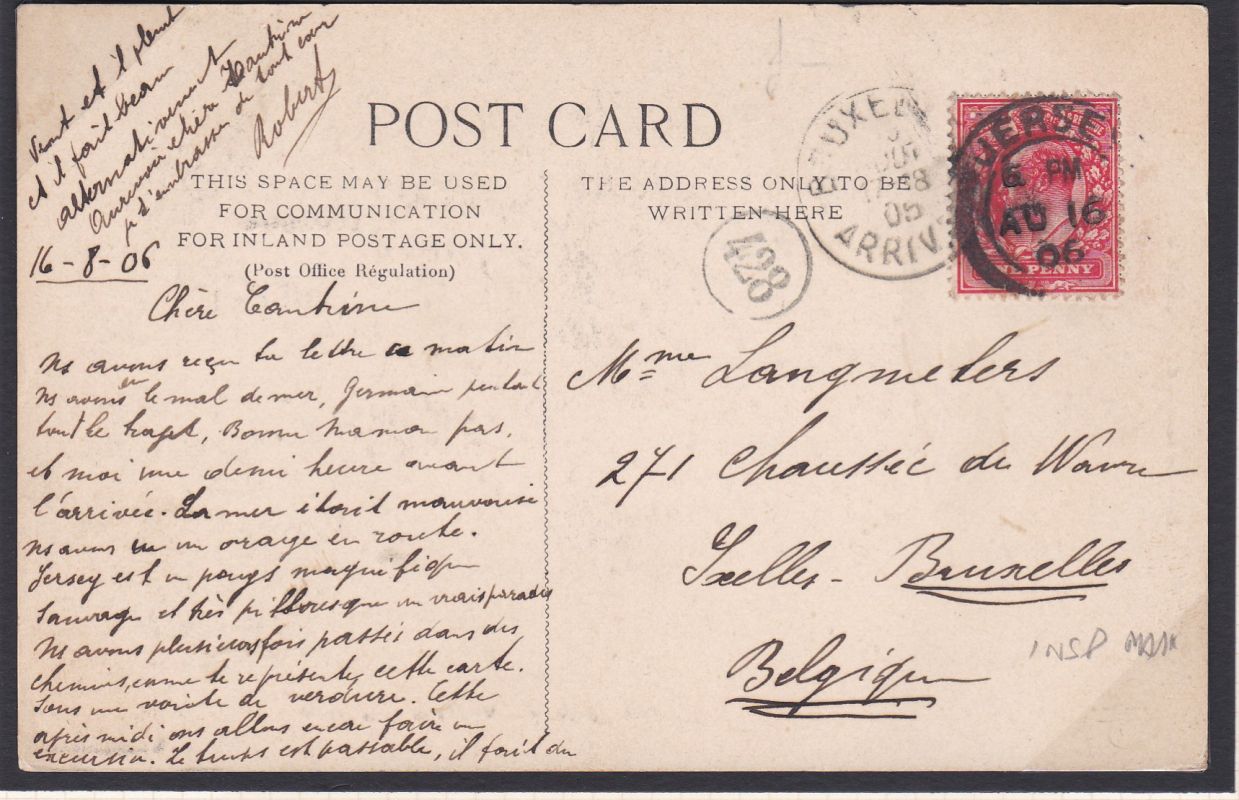 POST CARD
THIS SPACE MAY BE USED
FOR COMMUNICATION
FOR INLAND POSTAGE ONLY.
(Post Office Régulation)
THE ADDRESS ONLY TO BE
WRITTEN HERE
16-8-06
Chère Tantine
Ns avons reçu ta lettre ce matin
Ns avons eu le mal de mer, Germain pendant
tout le trajet, Bonne Maman pas,
et moi une demi heure avant
l'arrivée. La mer était mauvaise
ns avons eu un orage en route.
Jersey est un pays magnifique
sauvage et très pittoresque un vrai paradis
Ns avons plusieurs fois passés dans des
chemins, comme te représente cette carte.
Sous une voûte de verdure. Cette
après midi ns allons encore faire un
excursion. Le temps est passable, il fait du
vent et il pleut
et il fait beau
alternativement
Aurevoir chère Tantine
je t'embrasse de tout cœur
Robert
BRUXEL
05
ARRIV
428
JERSE
6 PM
AU 16
06
NE PENNY
Mme Langmeters
271 Chaussée de Wavre
Ixelles - Bruxelles
Belgique
INSP